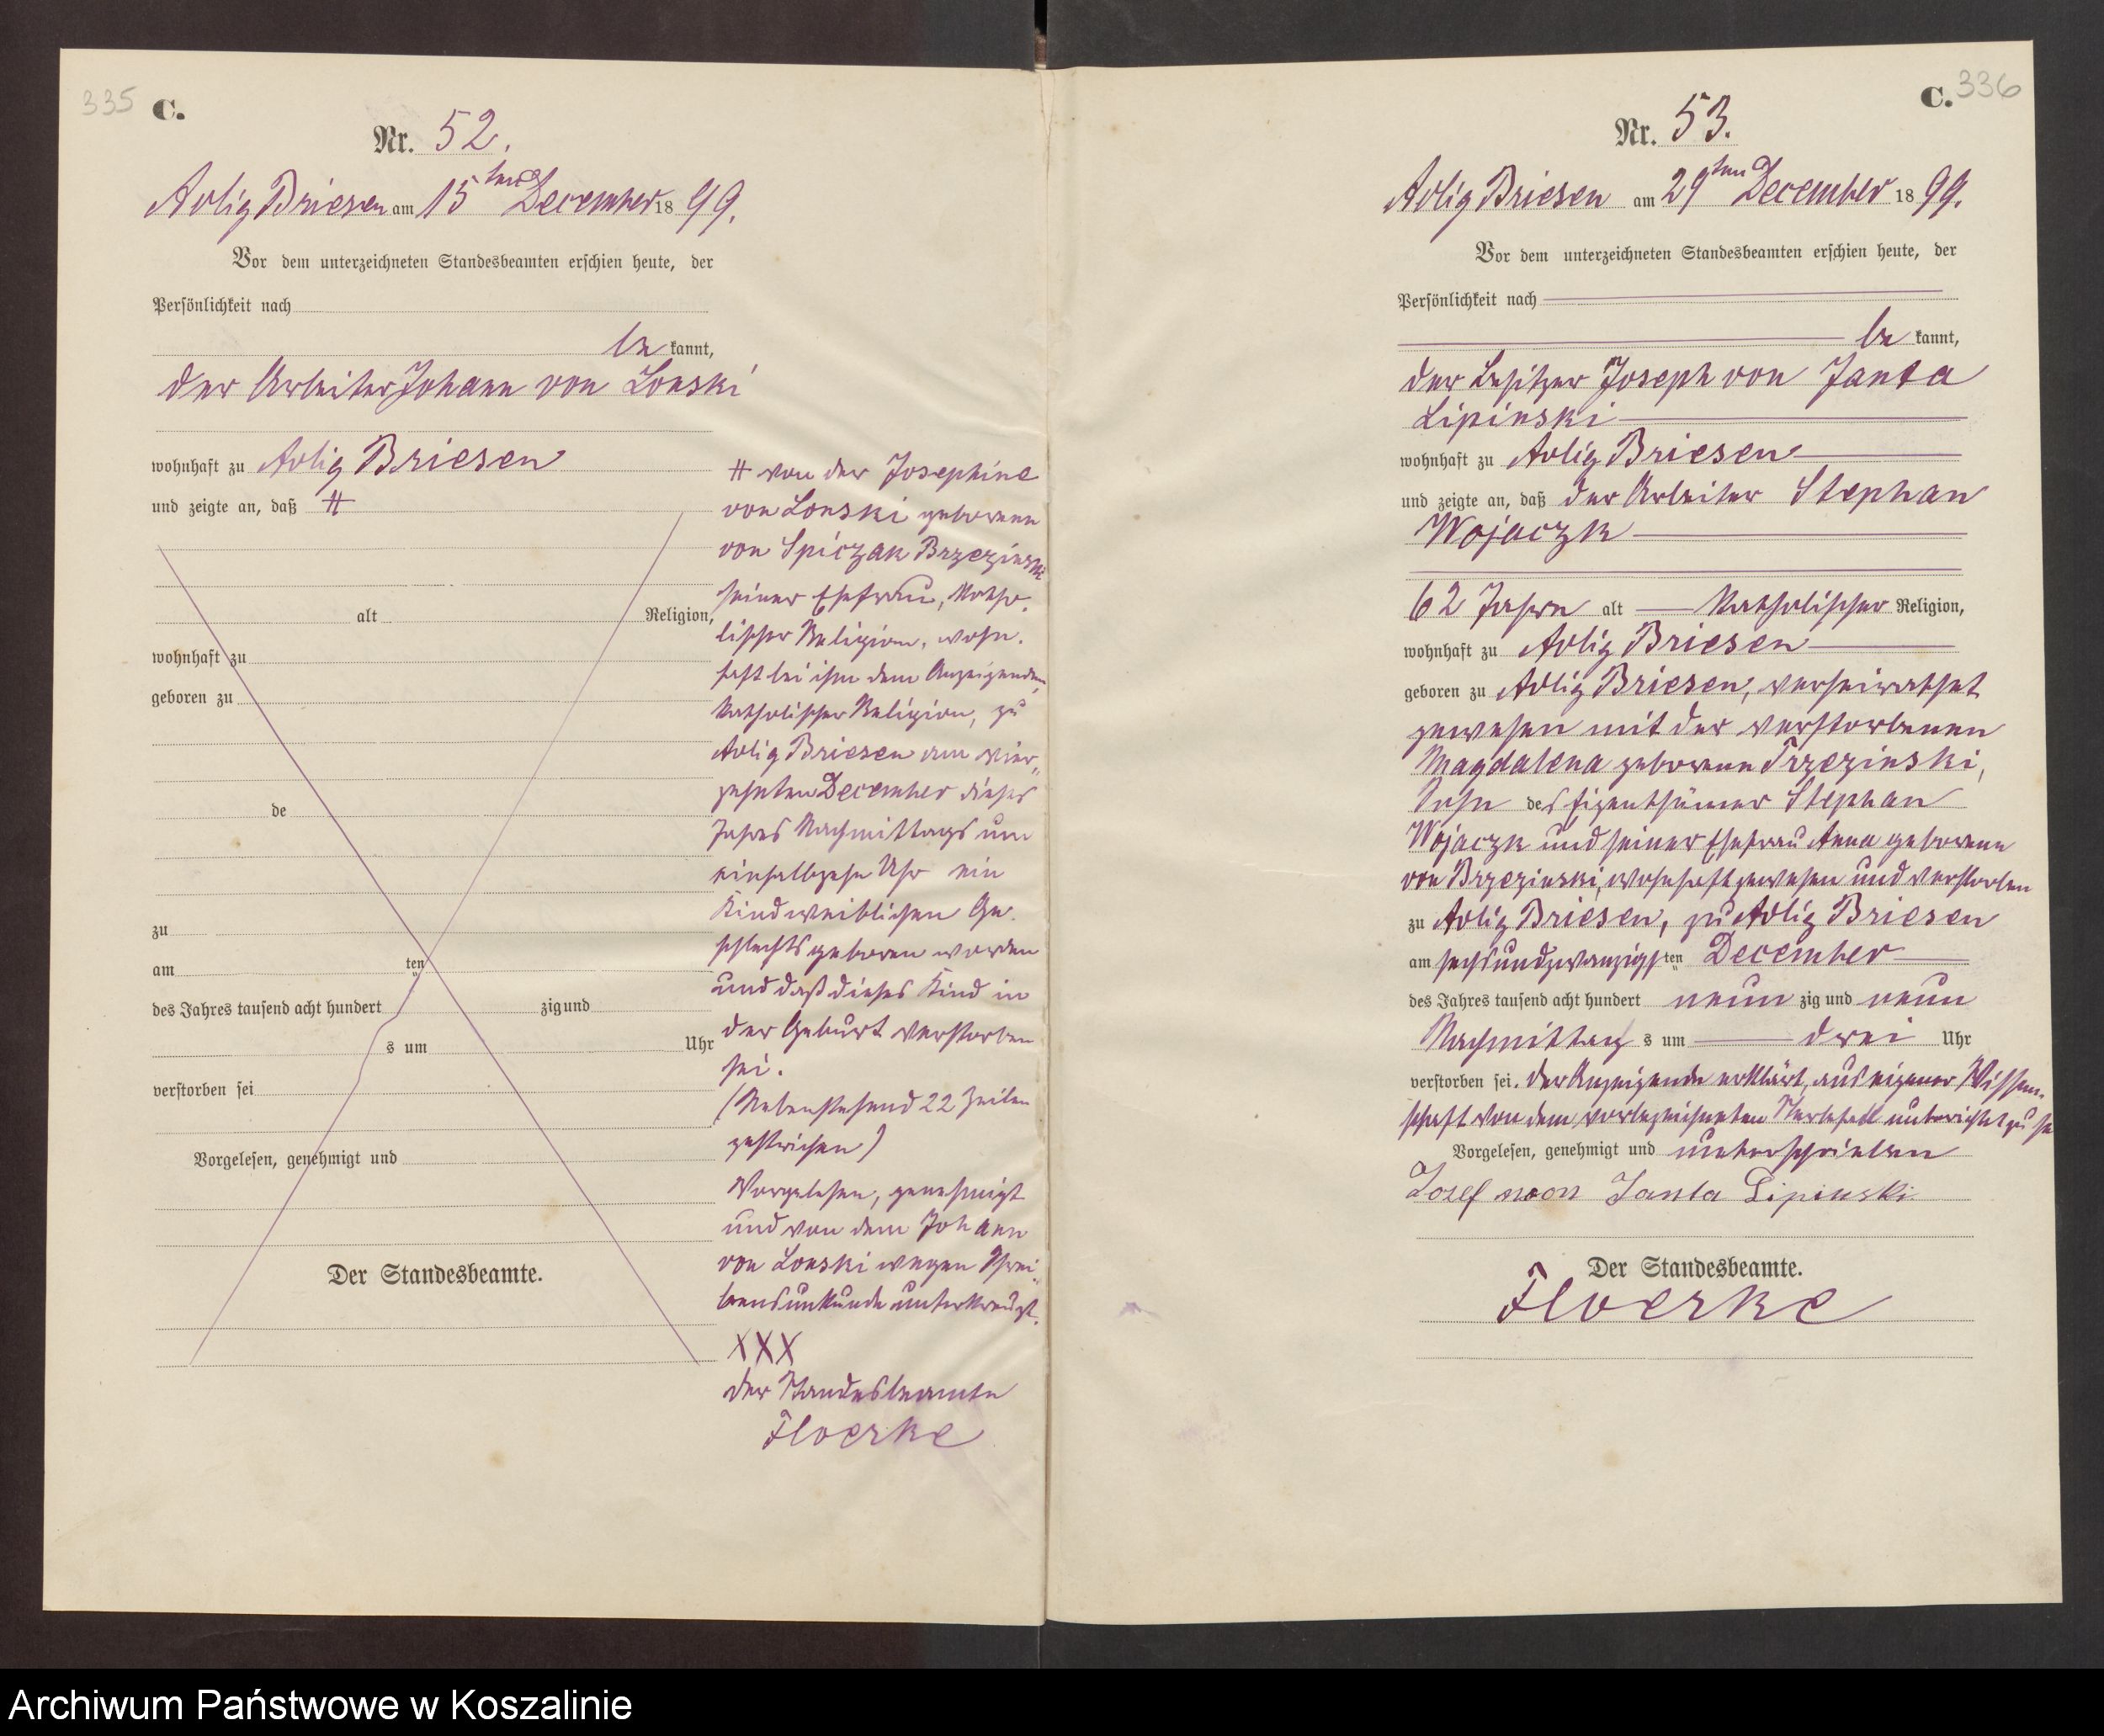 335 C.
Nr. 52.
Adlig Briesen am 15ten December 1899.
Vor dem unterzeichneten Standesbeamten erschien heute, der
Persönlichkeit nach
be kannt,
der Arbeiter Johann von Lonski
wohnhaft zu Adlig Briesen
und zeigte an, daß #
alt Religion,
wohnhaft zu
geboren zu
de
zu
am ten
des Jahres tausend acht hundert zig und
s um Uhr
verstorben sei
Vorgelesen, genehmigt und
Der Standesbeamte.
# von der Josephine
von Lonski geborenen
von Spiczak Brzezinski
seiner Ehefrau, katho-
lischer Religion, wohn-
haft bei ihm dem Anzeigenden,
katholischer Religion, zu
Adlig Briesen am vier-
zehnten December dieses
Jahres Nachmittags um
einhalbzehn Uhr ein
Kind weiblichen Ge-
schlechts geboren worden
und daß dieses Kind in
der Geburt verstorben
sei.
(Nebenstehend 22 Zeilen
gestrichen)
Vorgelesen, genehmigt
und von dem Johann
von Lonski wegen Schrei-
bensunkunde unterkreuzt.
XXX
der Standesbeamte
Floerke
C. 336
Nr. 53.
Adlig Briesen am 29ten December 1899.
Vor dem unterzeichneten Standesbeamten erschien heute, der
Persönlichkeit nach
be kannt,
der Besitzer Joseph von Janta
Lipinski
wohnhaft zu Adlig Briesen
und zeigte an, daß der Arbeiter Stephan
Wojaczk
62 Jahre alt katholischer Religion,
wohnhaft zu Adlig Briesen
geboren zu Adlig Briesen, verheirathet
gewesen mit der verstorbenen
Magdalena geborene Trzezinski,
Sohn des Eigenthümer Stephan
Wojaczk und seiner Ehefrau Anna geborene
von Brzezinski, wohnhaft gewesen und verstorben
zu Adlig Briesen, zu Adlig Briesen
am sechsundzwanzigsten December
des Jahres tausend acht hundert neun zig und neun
Nachmittag s um drei Uhr
verstorben sei. Der Anzeigende erklärt, aus eigener Wissen-
schaft von dem vorbezeichneten Sterbefall unterrichtet zu se
Vorgelesen, genehmigt und unterschrieben
Jozef woon Janta Lipinski
Der Standesbeamte.
Floerke
Archiwum Państwowe w Koszalinie